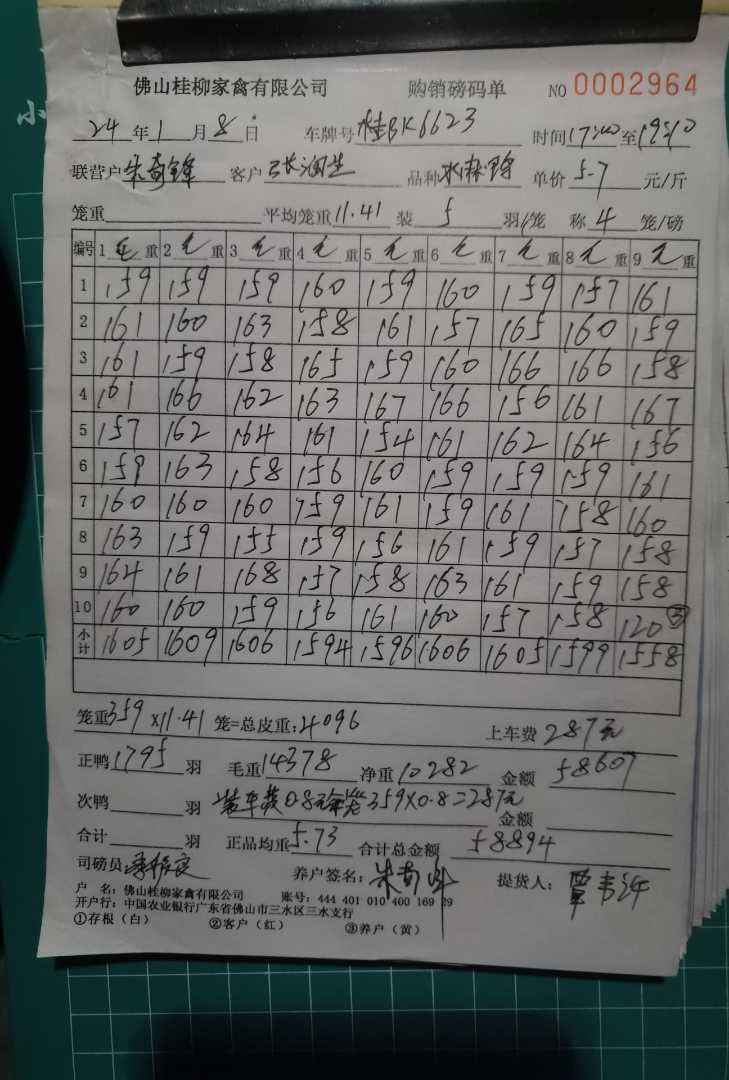 佛山桂柳家禽有限公司 购销磅码单 NO 0002964
24年1月8日 车牌号 桂BK6623 时间17:00至19:10
联营户 朱奇锋 客户 张润生 品种 单价 5.7 元/斤
笼重 平均笼重11.41 装 5 羽/笼 称 4 笼/磅
编号 1 毛 重 2 毛 重 3 毛 重 4 毛 重 5 毛 重 6 毛 重 7 毛 重 8 毛 重 9 毛 重
1 159 159 159 160 159 160 159 157 161
2 161 160 163 158 161 157 165 160 159
3 161 159 158 165 159 160 166 166 158
4 161 166 162 163 167 166 156 161 167
5 157 162 164 161 154 161 162 164 156
6 159 163 158 156 160 159 159 159 161
7 160 160 160 159 161 159 161 158 160
8 163 159 155 159 156 161 159 157 158
9 164 161 168 157 158 163 161 159 158
10 160 160 159 156 161 160 157 158 120 ③
小计 1605 1609 1606 1594 1596 1606 1605 1599 1558
笼重359×11.41 笼=总皮重:4096 上车费 287元
正鸭 1795 羽 毛重14378 净重10282 金额 58607
次鸭 羽 装车费0.8元/笼 359×0.8=287元 金额
合计 羽 正品均重5.73 合计总金额 58894
司磅员: 养户签名: 朱奇锋 提货人:
户 名: 佛山桂柳家禽有限公司 账号: 444 401 010 400 169 29
开户行: 中国农业银行广东省佛山市三水区三水支行
①存根（白） ②客户（红） ③养户（黄）
小